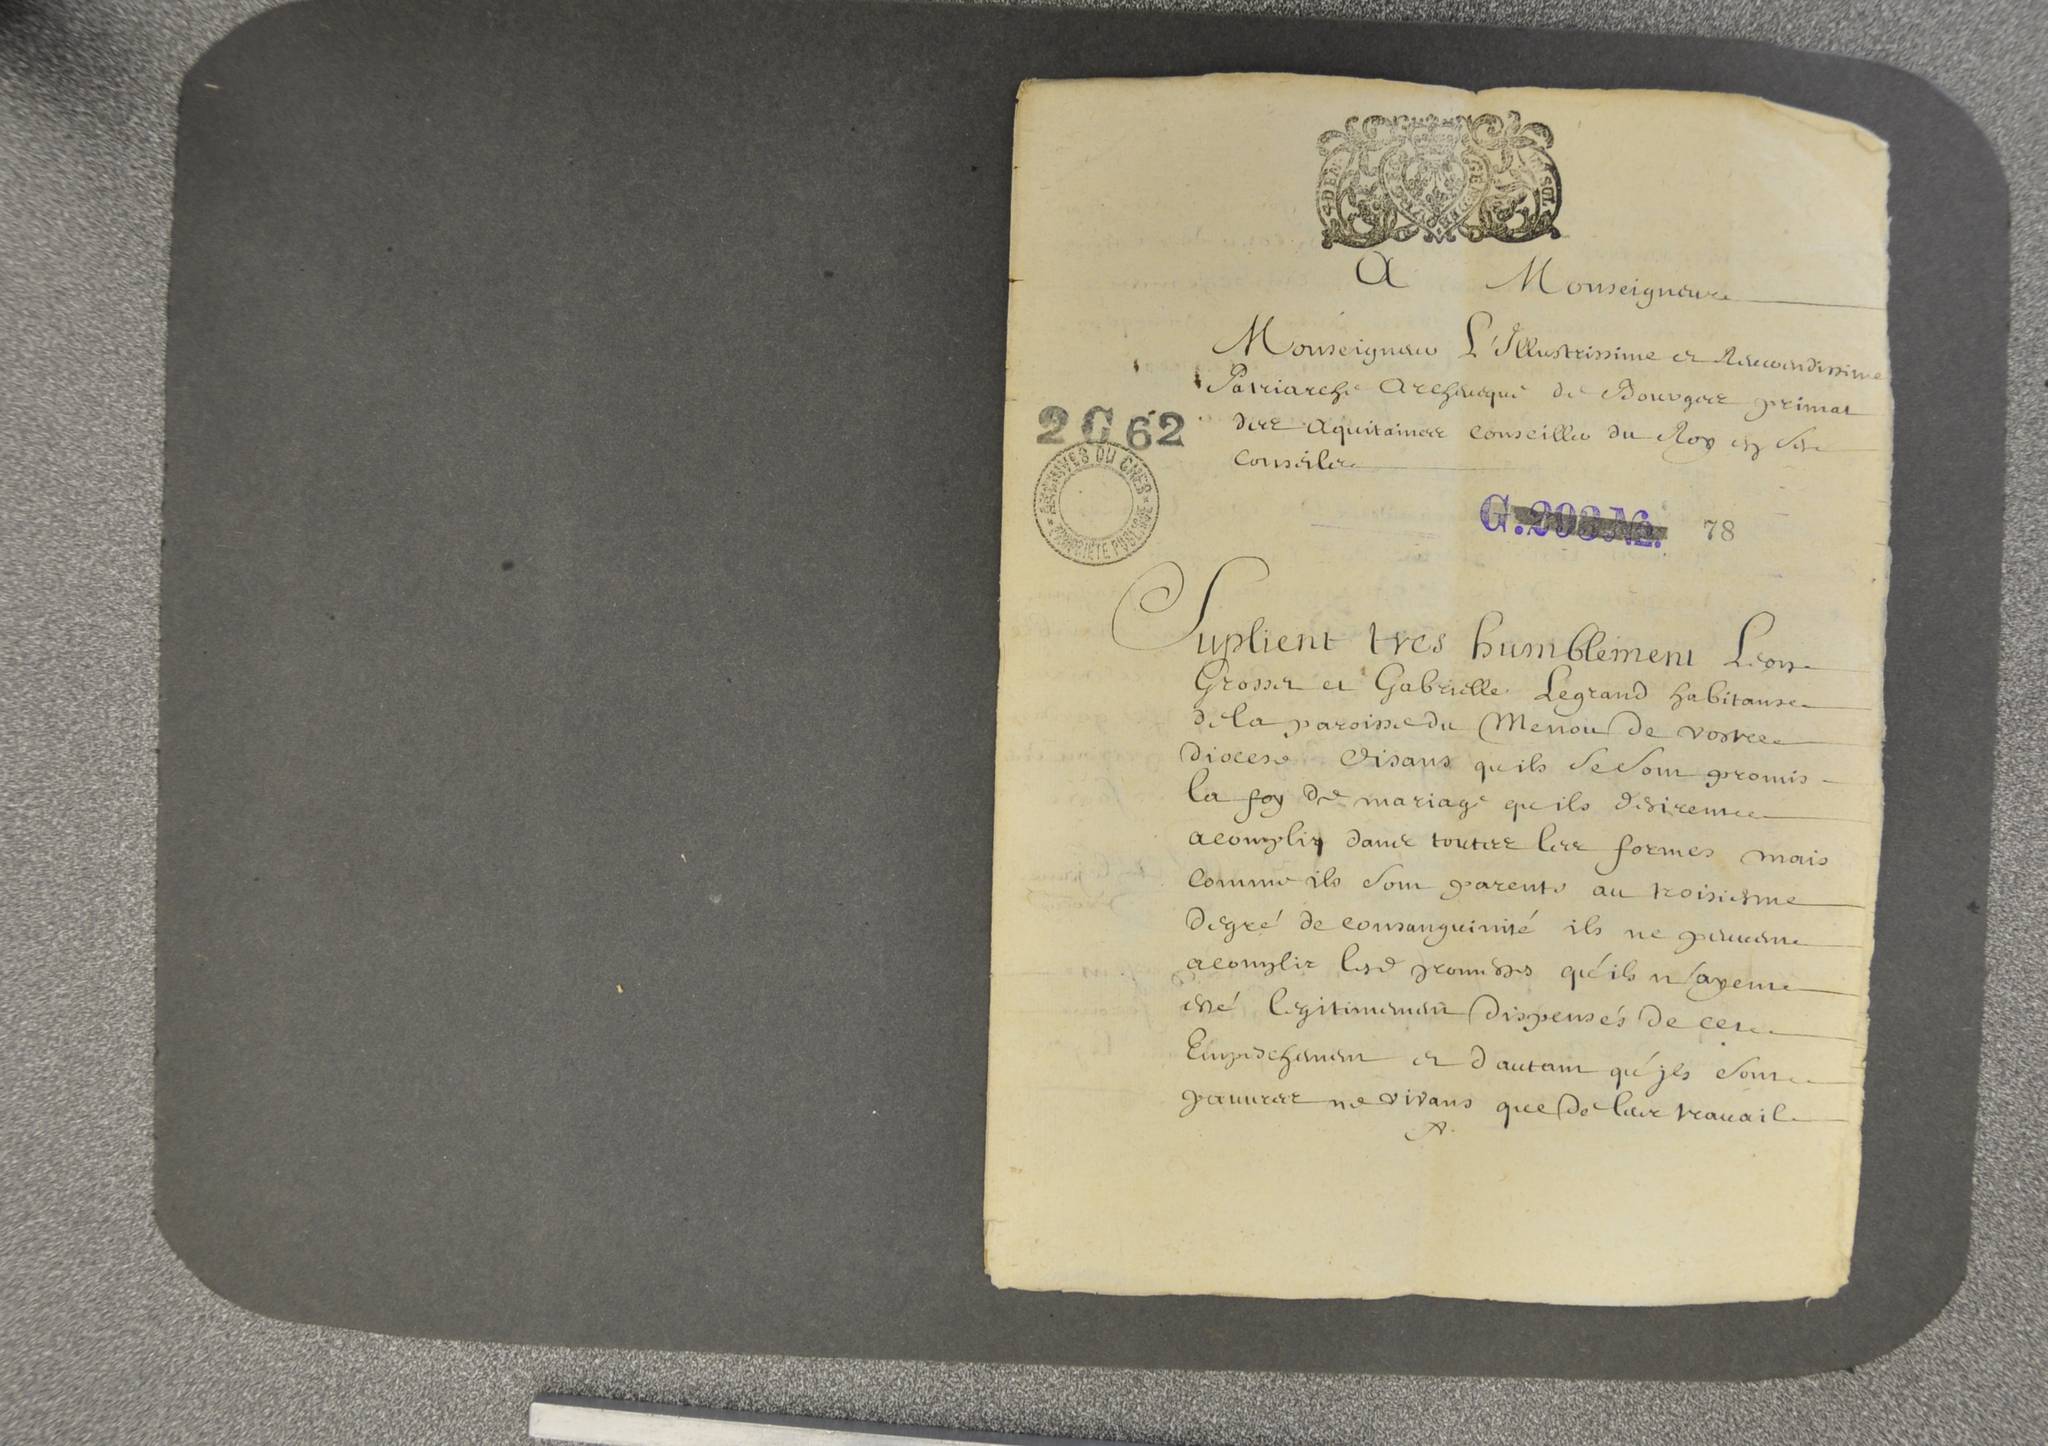 4 DEN
SOL
A Monseigneur
Monseigneur L'Illustrissime et Reverendissime
Patriarche Archeveque de Bourges primat
des Aquitaines Conseiller du Roy en ses
Conseils
2 G 62
ARCHIVES DU CHER
PROPRIÉTÉ PUBLIQUE
G. 293
78
Suplient tres humblement Leon
Grosset et Gabrielle Legrand habitans
de la paroisse du Menou de vostre
diocese Disans qu ils se sont promis
la foy de mariage qu ils desirent
acomplir dans toutes les formes mais
comme ils sont parents au troisieme
degré de consanguinité ils ne peuvent
acomplir lesd promesses qu'ils n'ayent
esté legitimement dispensés de cet
Empeschement et d'autant qu'jls sont
pauvres ne vivans que de leur travail